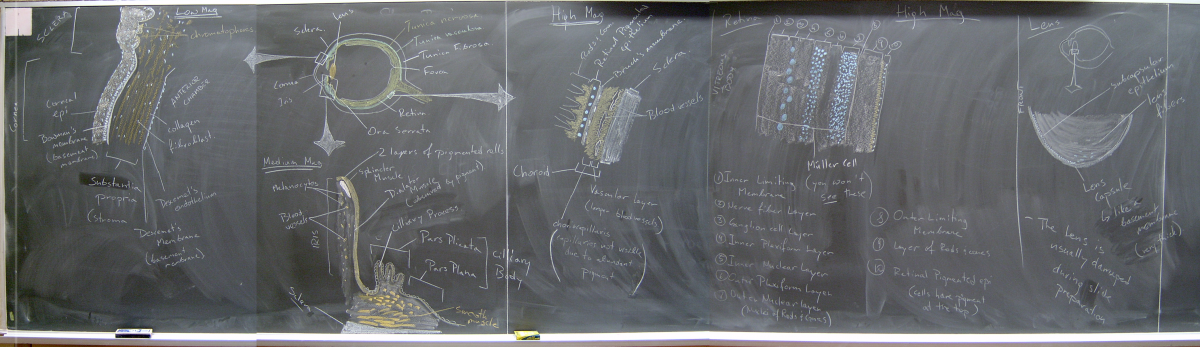 Low Mag
SCLERA
chromatophores
Cornea
Corneal
epi
Bowman's
membrane
(basement
membrane)
ANTERIOR
CHAMBER
collagen
fibroblast
Substantia
propria
(stroma
Descemet's
endothelium
Descemet's
Membrane
(basement
membrane)
Lens
Sclera
Cornea
Iris
Tunica nervosa
Tunica vasculosa
Tunica Fibrosa
Fovea
Retina
Ora serrata
Medium Mag
2 layers of pigmented cells
Sphincter
Muscle
Dialator
Muscle
(obscured by pigment)
Melanocytes
Blood
vessels
IRIS
Cilliary Process
Pars Plicata
Pars Plana
Cilliary
Body
Sclera
smooth
muscle
High Mag
Rods+Cones
Retinal Pigmented
epithelium
Bruch's membrane
Sclera
Blood vessels
Choroid
Vascular layer
(larger blood vessels)
choriocapillaris
capillaries not visible
due to abundant
pigment
Retina
High Mag
① ② ③ ④ ⑤ ⑥ ⑦ ⑧ ⑨ ⑩
Müller Cell
(you won't
see these)
① Inner Limiting
Membrane
② Nerve fiber Layer
③ Ganglion cell Layer
④ Inner Plexiform Layer
⑤ Inner Nuclear Layer
⑥ Outer Plexiform Layer
⑦ Outer Nuclear layer
(Nuclei of Rods+Cones)
⑧ Outer Limiting
Membrane
⑨ Layer of Rods+cones
⑩ Retinal Pigmented epi
(cells have pigment
at the top)
Lens
FRONT
subcapsular
epithelium
Lens
fibers
Lens
Capsule
basement
membrane
- The Lens is
usually damaged
during slide
preparation